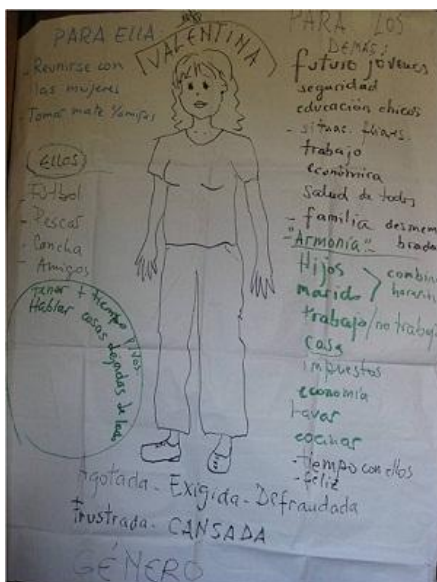 PARA ELLA
- Reunirse con
las mujeres
- Tomar mate
VALENTINA
ELLOS
- Fútbol
- Pescar
- Cancha
- Amigos
tener + tiempo
Hablar cosas dejadas de lado
PARA LOS
DEMÁS:
futuro jóvenes
seguridad
educación chicos
- situac.
trabajo
económica
salud de todos
- familia desmem
brada
- "Armonía"
Hijos
marido
combinar
horarios
trabajo/no trabajo
casa
impuestos
economía
lavar
cocinar
- tiempo con ellos
- feliz
Agotada - Exigida - Defraudada
Frustrada - CANSADA
GÉNERO